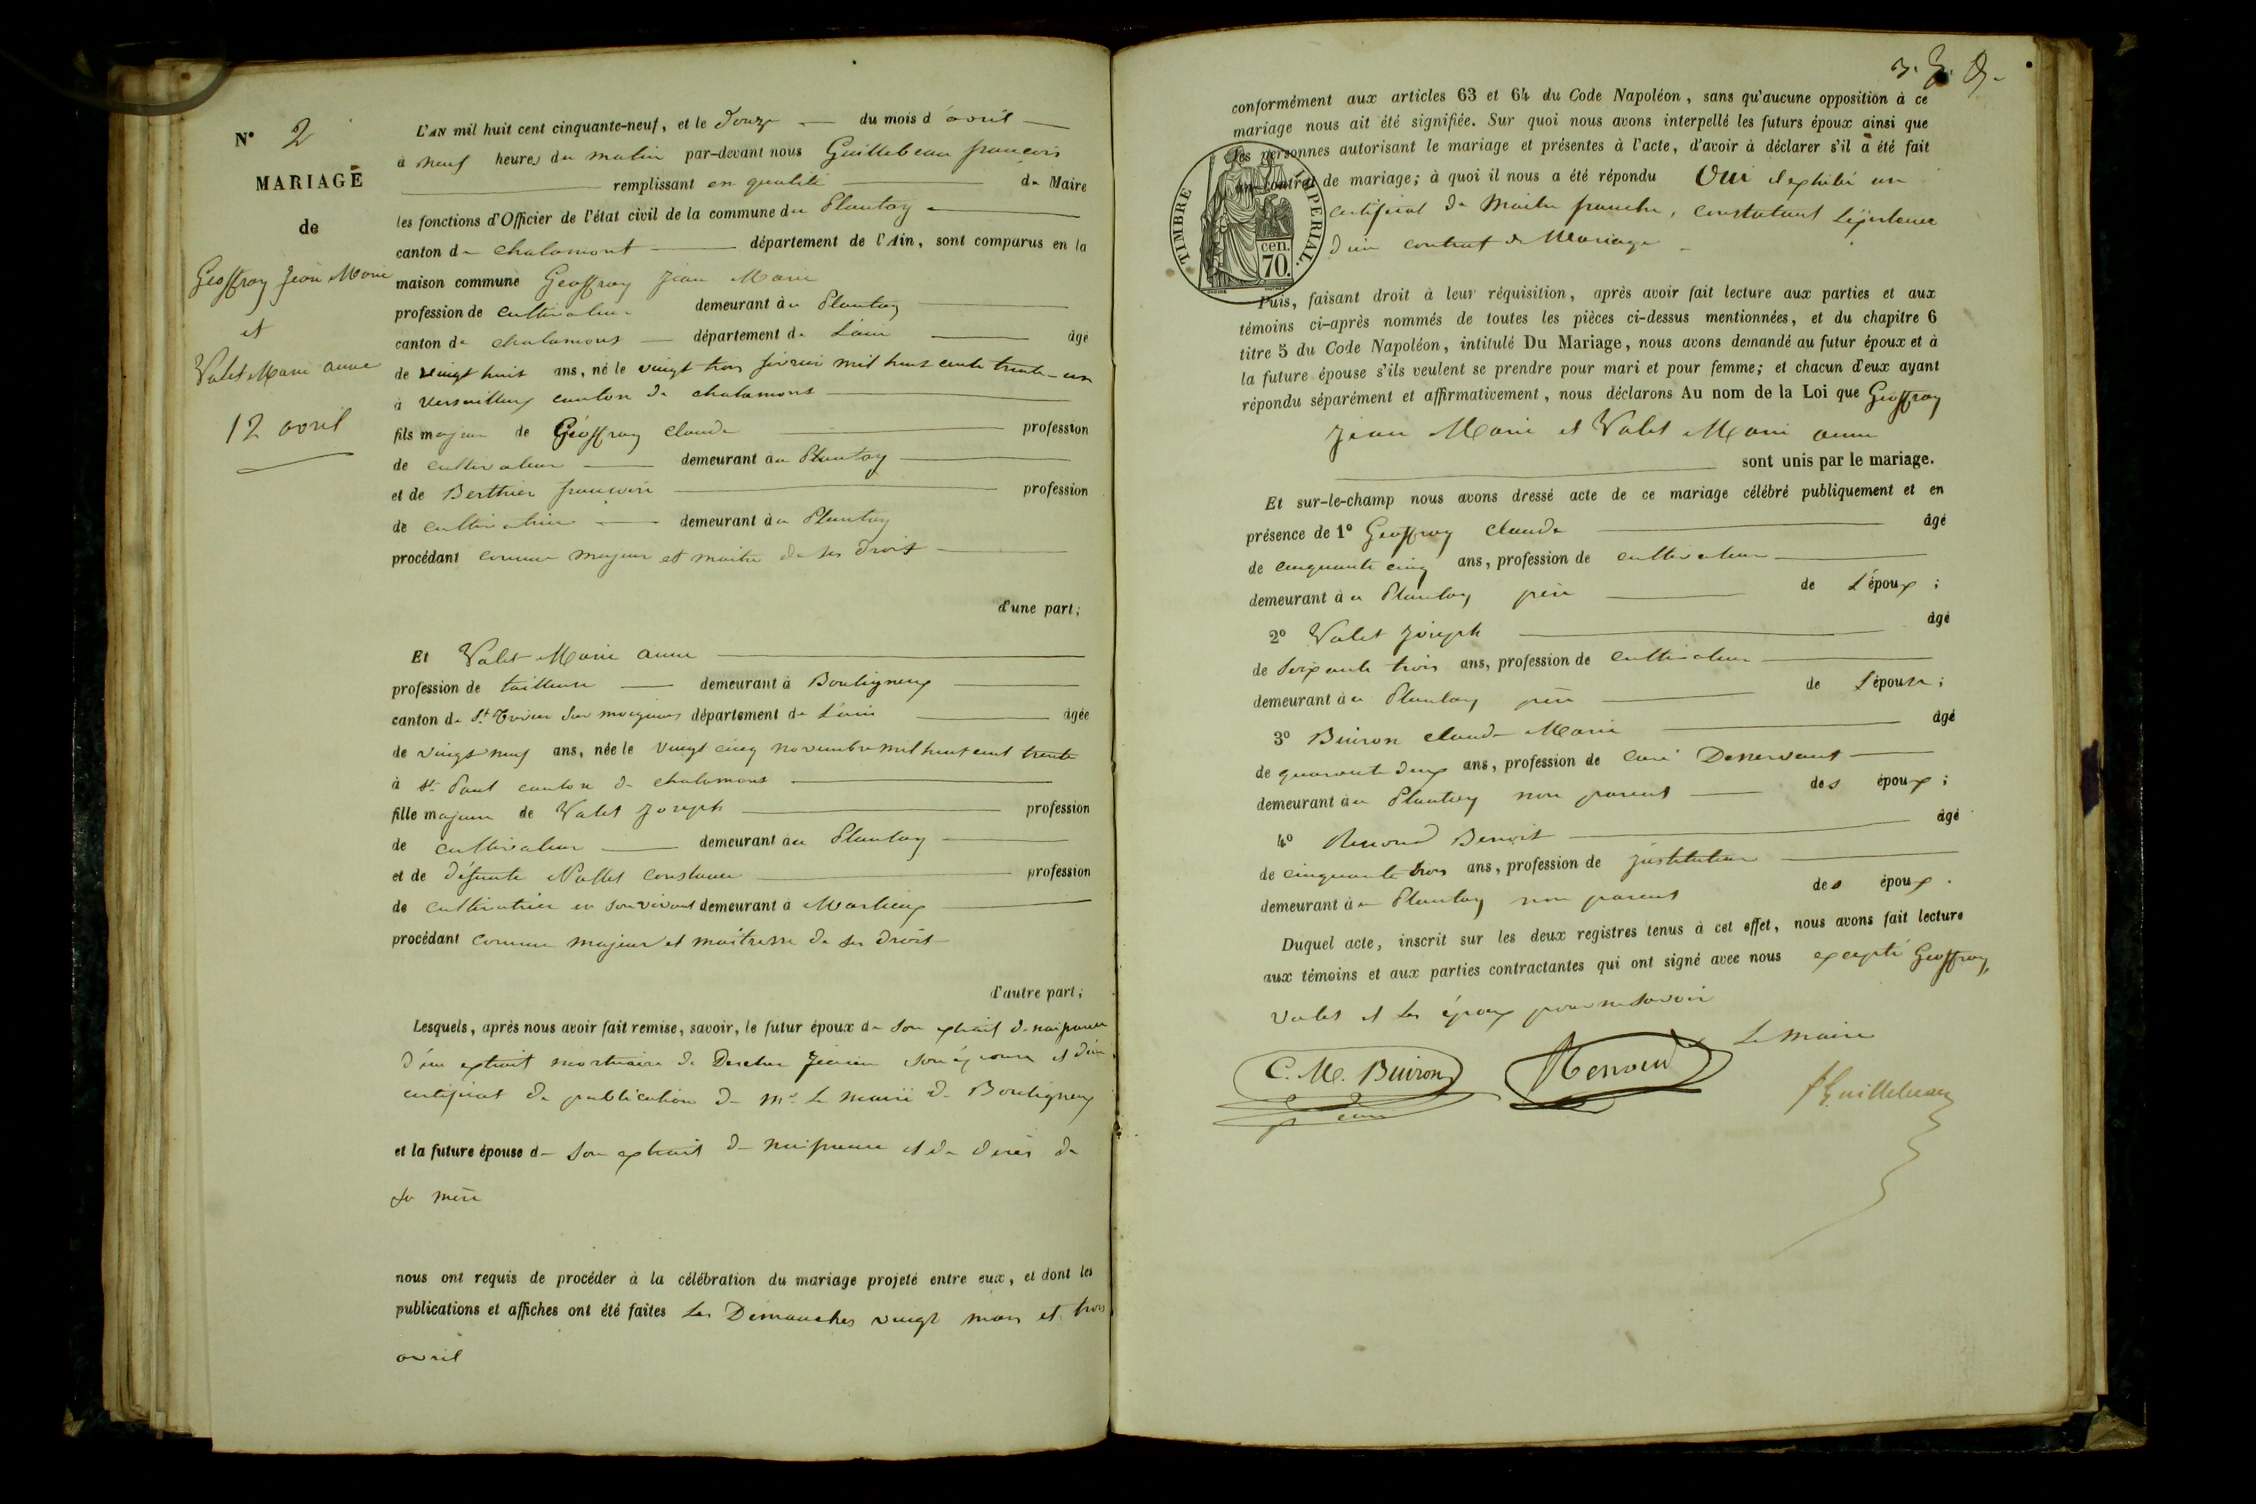 N° 2
MARIAGE
de
Geoffray Jean Marie
et
Valet Marie anne
12 avril
L'AN mil huit cent cinquante-neuf, et le Douze du mois d'avril
à neuf heures du matin par-devant nous Guillebeau françois
remplissant en qualité de Maire
les fonctions d'Officier de l'état civil de la commune du Plantay
canton de chalamont département de l'Ain, sont comparus en la
maison commune Geoffray Jean Marie
profession de cultivateur demeurant au Plantay
canton de chalamont département de L'ain âgé
de vingt huit ans, né le vingt trois février mil huit cents trente-un
à Versailleux canton de chalamont
fils majeur de Géoffray Claude profession
de cultivateur demeurant au Plantay
et de Berthier françoise profession
de cultivatrice demeurant au Plantay
procédant comme majeur et maitre de ses droits
d'une part;
Et Valet Marie anne
profession de tailleuse demeurant à Bouligneux
canton de St Trivier sur moignans département de L'ain âgée
de vingt neuf ans, née le vingt cinq novembre mil huit cent trente
à St Paul canton de chalamont
fille majeure de Valet Joseph profession
de cultivateur demeurant au Plantay
et de défunte Nallet constance profession
de cultivatrice en son vivant demeurant à Marlieux
procédant comme majeur et maîtresse de ses droits
d'autre part;
Lesquels, après nous avoir fait remise, savoir, le futur époux de son extrait de naissance
d'un extrait mortuaire de son épouse et d'un
certificat de publication de Mr le maire de Bouligneux
et la future épouse de son extrait de naissance et de décès de
sa mère
nous ont requis de procéder à la célébration du mariage projeté entre eux, et dont les
publications et affiches ont été faites les Dimanches vingt mars et trois
avril
conformément aux articles 63 et 64 du Code Napoléon, sans qu'aucune opposition à ce
mariage nous ait été signifiée. Sur quoi nous avons interpellé les futurs époux ainsi que
les personnes autorisant le mariage et présentes à l'acte, d'avoir à déclarer s'il a été fait
un contrat de mariage; à quoi il nous a été répondu Oui et exhibé un
certificat de Maitre franche, constatant L'existence
d'un contrat de Mariage
TIMBRE IMPERIAL.
cen.
70.
Puis, faisant droit à leur réquisition, après avoir fait lecture aux parties et aux
témoins ci-après nommés de toutes les pièces ci-dessus mentionnées, et du chapitre 6
titre 5 du Code Napoléon, intitulé Du Mariage, nous avons demandé au futur époux et à
la future épouse s'ils veulent se prendre pour mari et pour femme; et chacun d'eux ayant
répondu séparément et affirmativement, nous déclarons Au nom de la Loi que Géoffray
Jean Marie et Valet Marie anne
sont unis par le mariage.
Et sur-le-champ nous avons dressé acte de ce mariage célébré publiquement et en
présence de 1° Geoffray Claude âgé
de cinquante cinq ans, profession de cultivateur
demeurant au Plantay père de L'époux;
2° Valet Joseph âgé
de soixante trois ans, profession de cultivateur
demeurant au Plantay père de L'épouse;
3° Buiron Claude Marie âgé
de quarante deux ans, profession de curé Desservant
demeurant au Plantay non parent des époux;
4° Renoud Benoit âgé
de cinquante trois ans, profession de instituteur
demeurant au Plantay non parent des époux.
Duquel acte, inscrit sur les deux registres tenus à cet effet, nous avons fait lecture
aux témoins et aux parties contractantes qui ont signé avec nous excepté Geoffray,
valet et les époux pour ne savoir
C. M. Buiron
Renoud
Le Maire
f Guillebeau